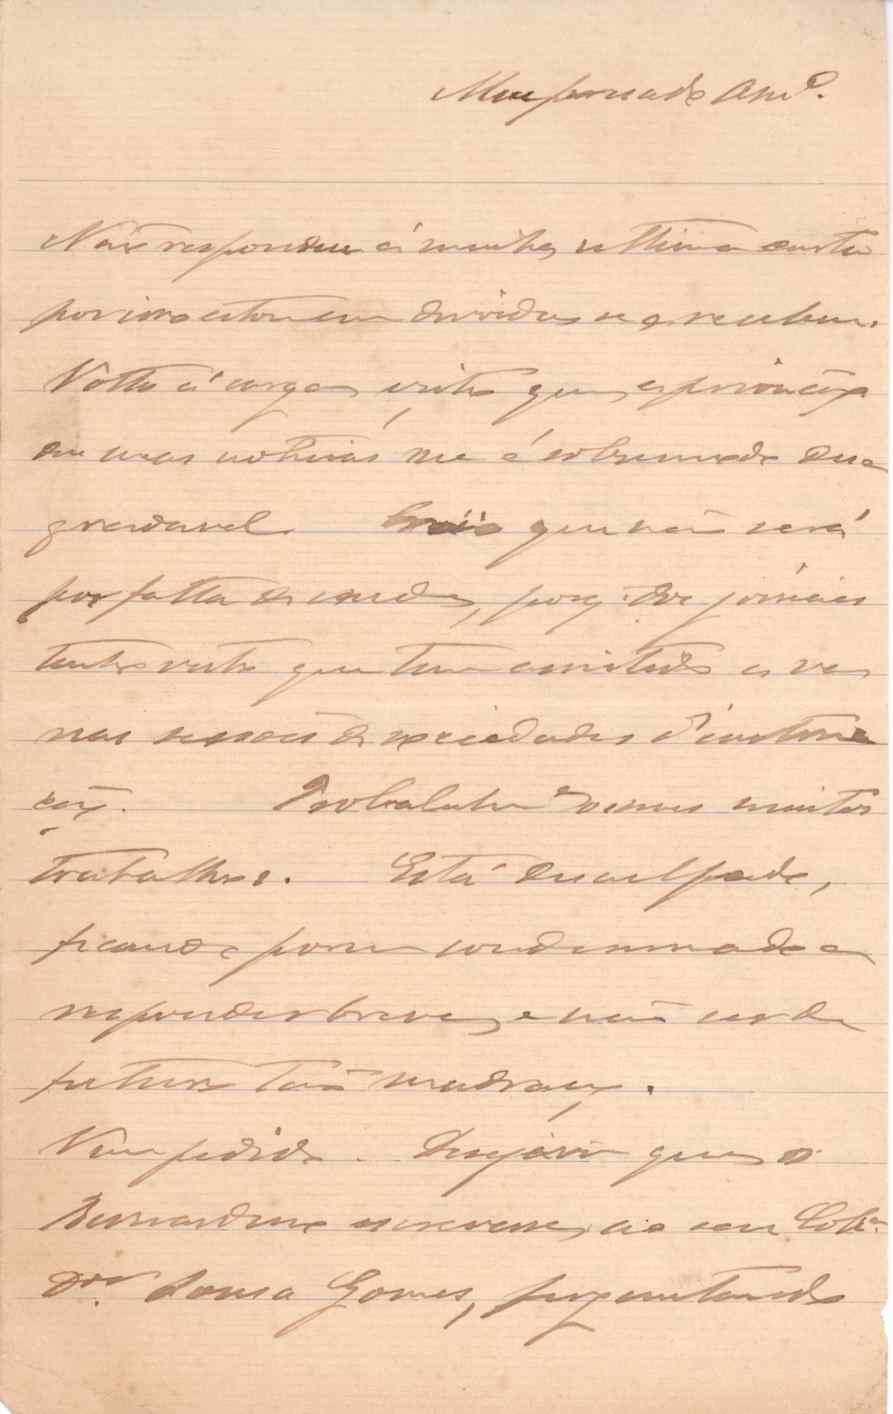 Meu presado Amº.
Não respondeu á minha ultima carta
por isso estou em duvida se a recebeu.
Volto á carga, visto que a privação
de suas noticias me é sobremodo desa
gradavel. Creio que não será
por falta de saude, porq. dos jornáes
tenho visto que tem assistido a va
rias sessões de sociedades d'instruc
ção. Trabalhos muitos
trabalhos. Está desculpado,
ficando porem condemnado a
responder breve, e não ser de
futuro tão mandrião.
Um pedido. Desejava que o
Bernardino escrevesse ao seu Colla
Dor. Sousa Gomes, perguntando